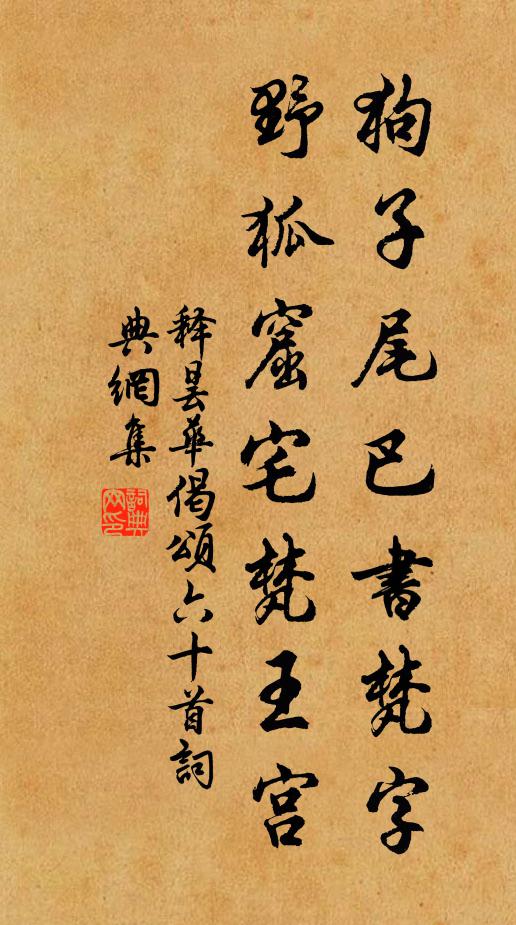 狗子尾巴書梵字
野狐窟宅梵王宫
释昙華偈頌六十首詞
典網集
詞典
网印